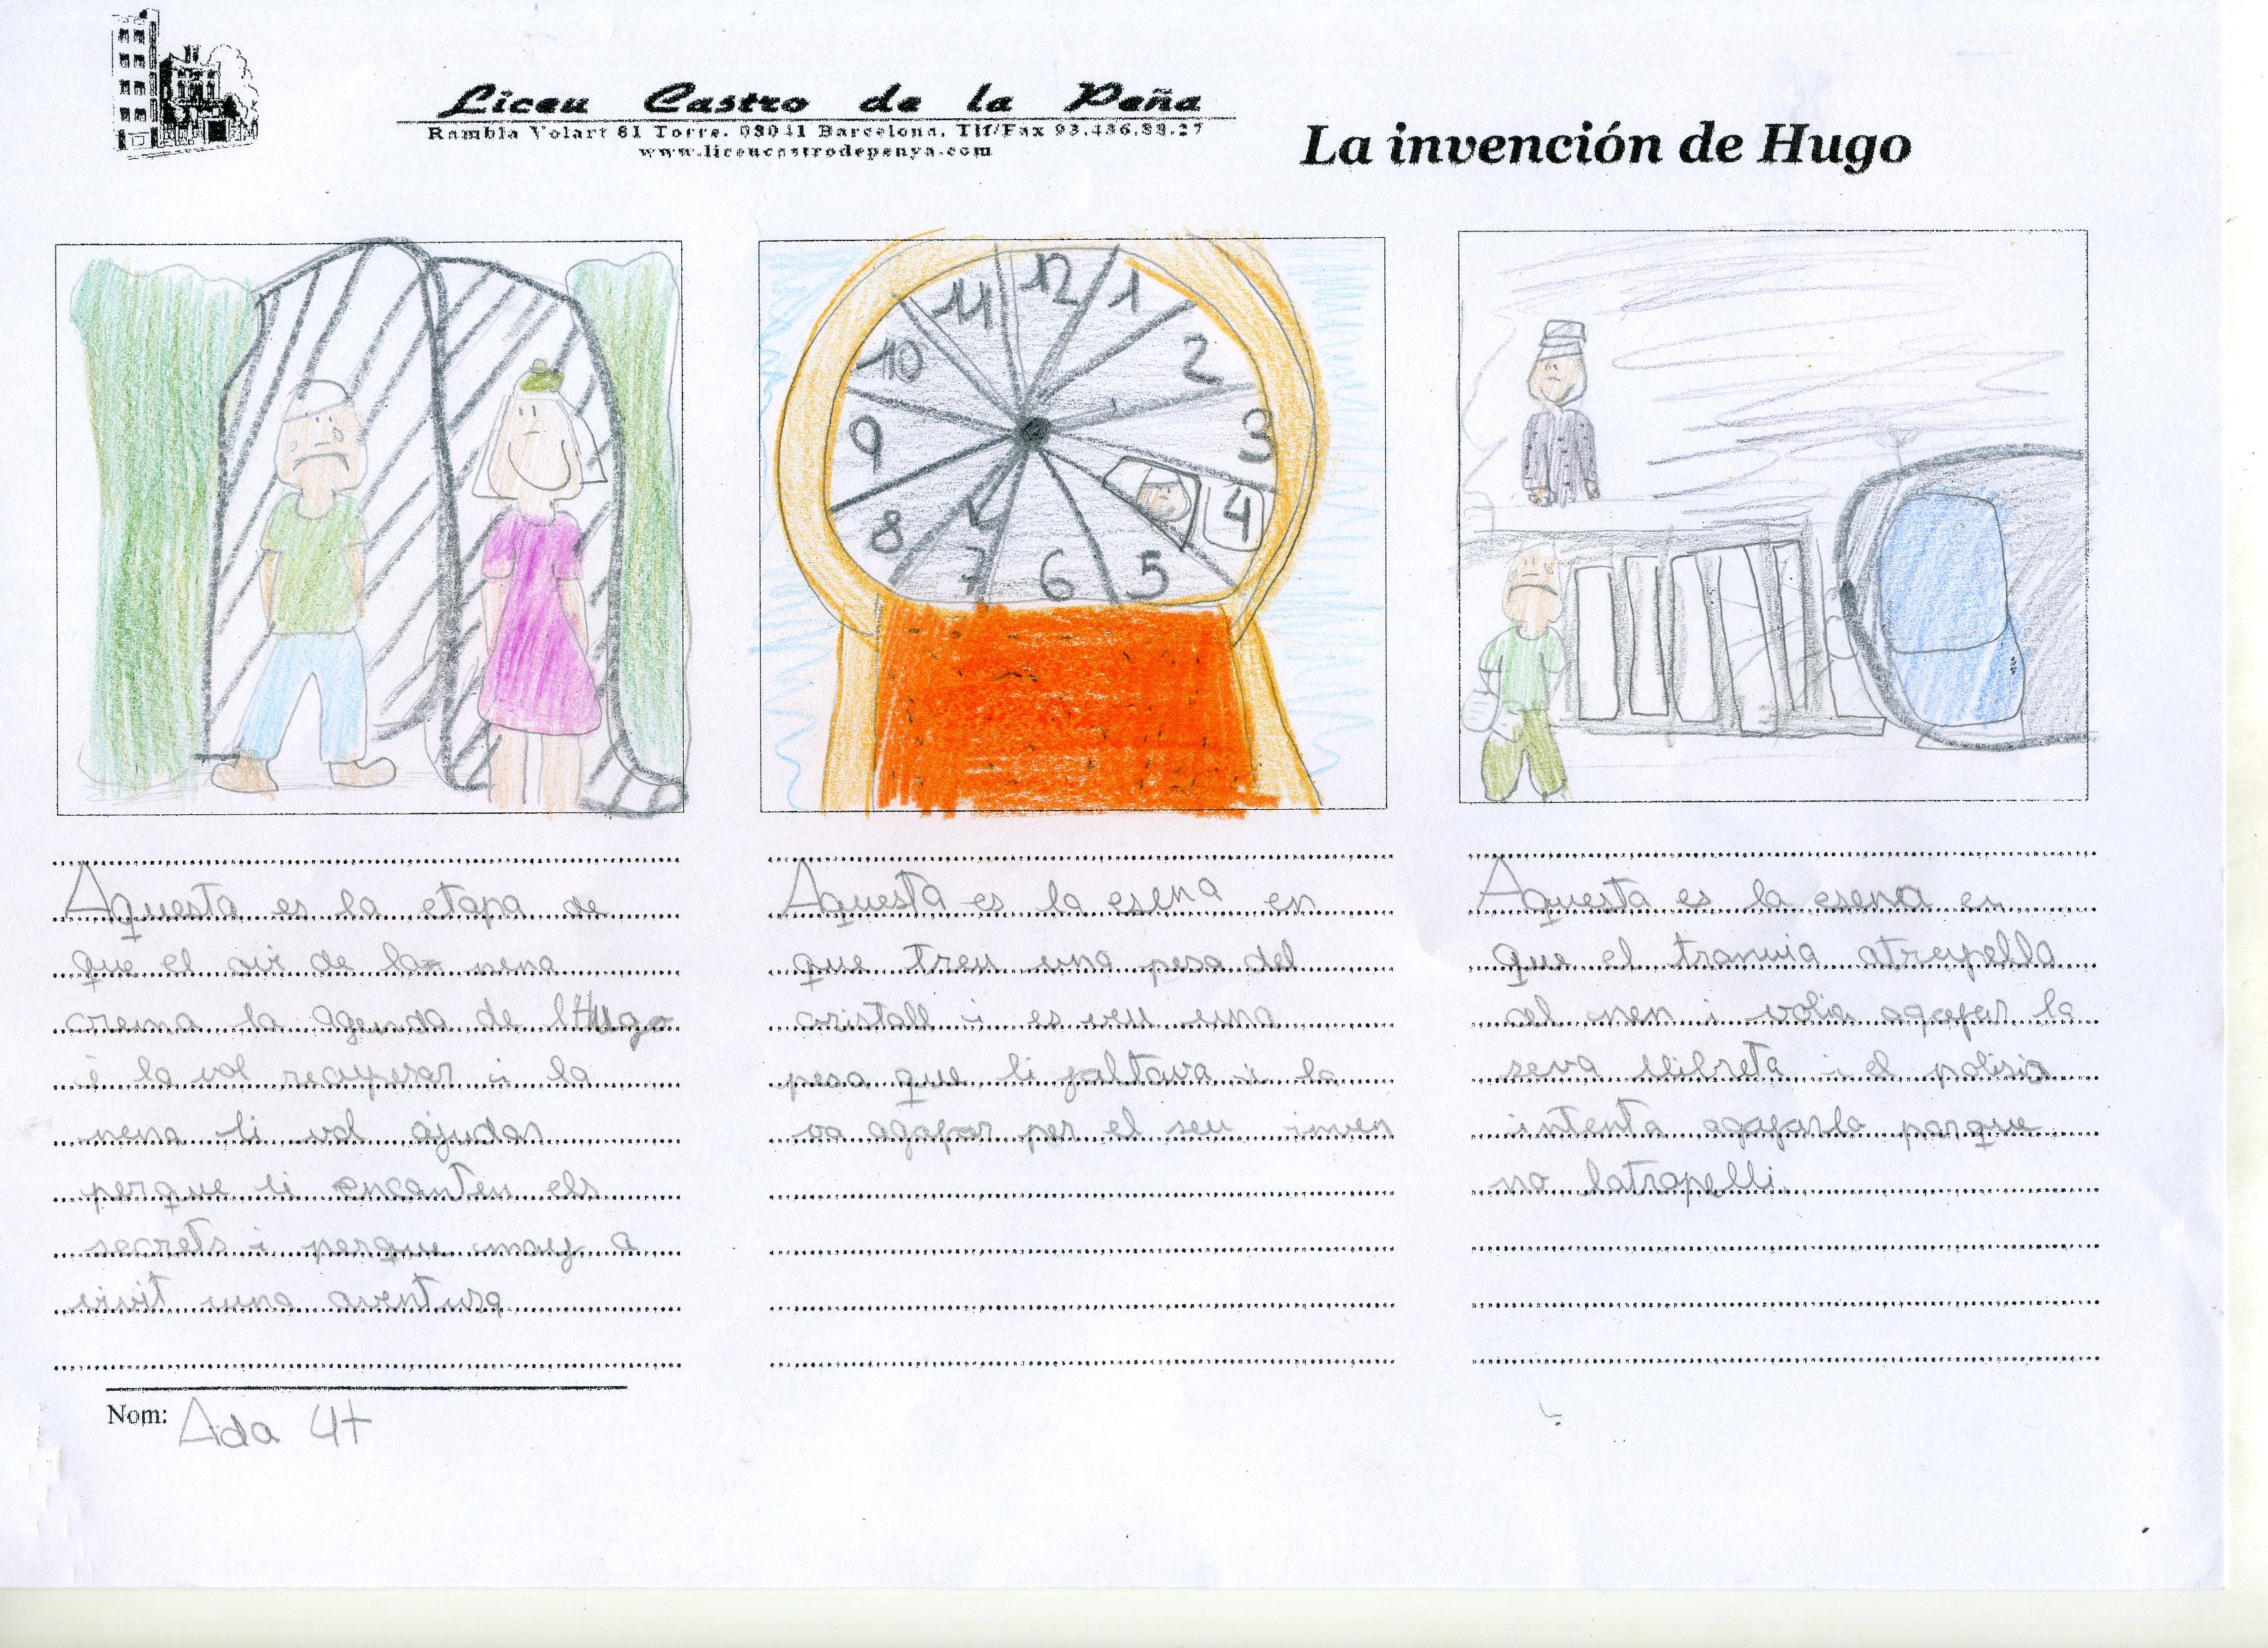 Liceu Castro de la Peña
Rambla Volart 81 Torre. 08041 Barcelona. Tlf/Fax 93.436.88.27
www.liceucastrodepenya.com
La invención de Hugo
11 12 1
10 2
9 3
8 4
7 6 5
Aquesta es la etapa de
que el avi de la nena
crema la agenda de l'Hugo
i la vol recuperar i la
nena li vol ajudar
perque li encanten els
secrets i perque may a
vivit una aventura
Aquesta es la esena en
que treu una pesa del
cristall i es veu una
pesa que li faltava i la
va agafar per el seu inven
Aquesta es la esena en
que el tranvia atropella
al nen i volia agafar la
seva llibreta i el polisia
intenta agafarlo perque
no latropelli.
Nom: Ada 4t